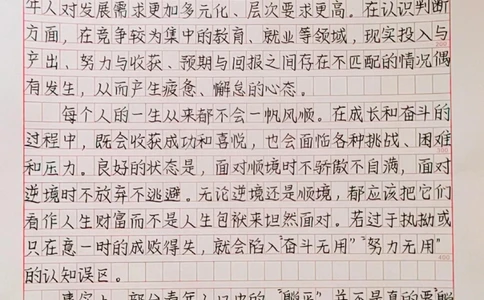 年人对发展需求更加多元化、层次要求更高。在认识判断
方面，在竞争较为集中的教育、就业等领域，现实投入与
产出、努力与收获、预期与回报之间存在不匹配的情况偶
有发生，从而产生疲惫、懈怠的心态。
每个人的一生从来都不会一帆风顺。在成长和奋斗的
过程中，既会收获成功和喜悦，也会面临各种挑战、困难
和压力。良好的状态是，面对顺境时不骄傲不自满，面对
逆境时不放弃不逃避。无论逆境还是顺境，都应该把它们
看作人生财富而不是人生包袱来坦然面对。若过于执拗或
只在意一时的成败得失，就会陷入"奋斗无用""努力无用"
400
的认知误区。
事实上，部分青年人口中的"躺平"并不是真的要"躺